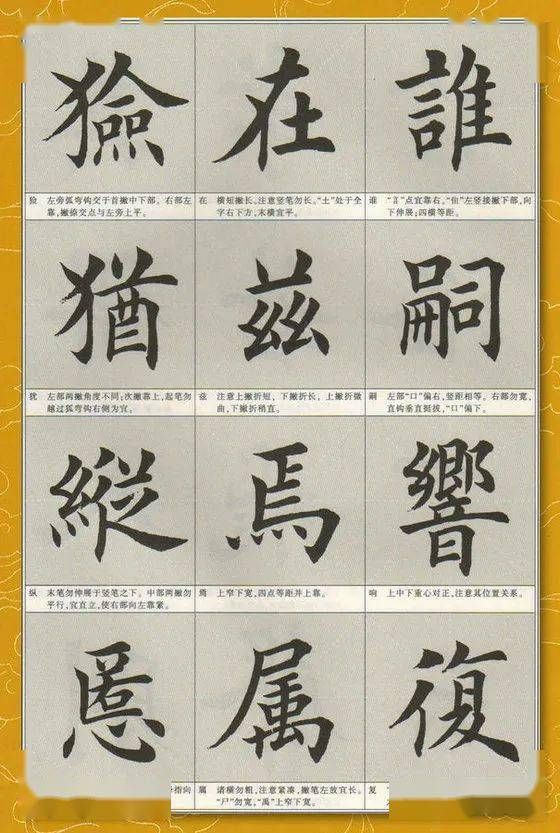 獫 在 誰
猃 左旁弧弯钩交于首撇中下部,右部左
靠,撇捺交点与左旁上平。
在 横短撇长,注意竖笔勿长。“土”处于全
字右下方,末横宜平。
谁 “言”点宜靠右,“隹”左竖接撇下部,向
下伸展;四横等距。
猶 兹 嗣
犹 左部两撇角度不同;次撇靠上,起笔勿
越过弧弯钩右侧为宜。
兹 注意上撇折短,下撇折长,上撇折微
曲,下撇折稍直。
嗣 左部“口”偏右,竖距相等。右部勿宽,
直钩垂直挺拔,“口”偏下。
縱 焉 響
纵 末笔勿伸展于竖笔之下。中部两撇勿
平行,宜直立,使右部向左靠紧。
焉 上窄下宽,四点等距并上靠。
响 上中下重心对正,注意其位置关系。
慝 属 復
指向
属 诸横勿粗,注意紧凑,撇笔左放宜长。
“尸”勿宽,“禹”上窄下宽。
复